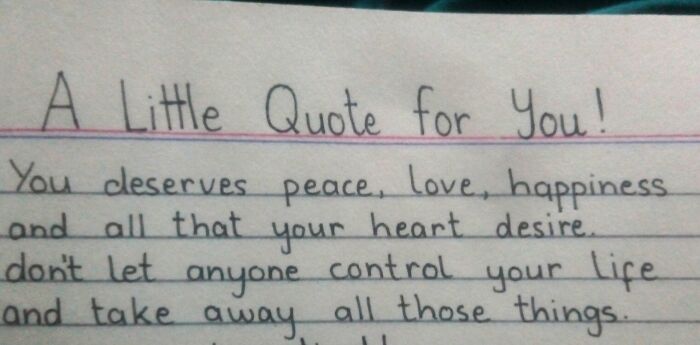 A Little Quote for You!
You deserves peace, love, happiness
and all that your heart desire.
don't let anyone control your life
and take away all those things.